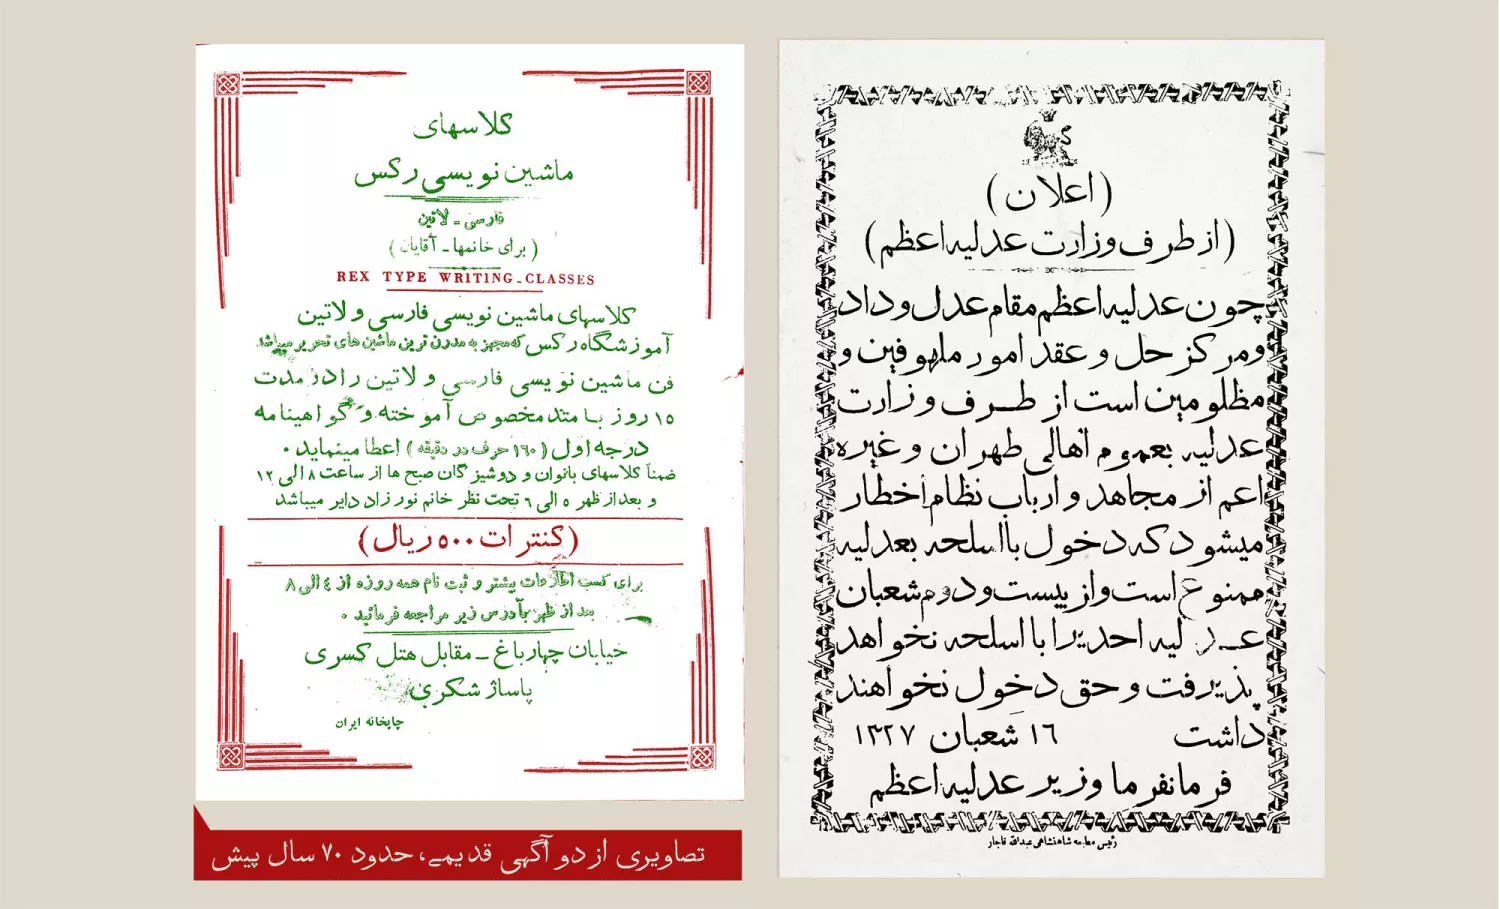 (اعلان)
(از طرف وزارت عدلیه اعظم)
چون عدلیه اعظم مقام عدل و داد
و مرکز حل و عقد امور ملهوفین و
مظلومین است از طرف وزارت
عدلیه بعموم اهالی طهران و غیره
اعم از مجاهد و ارباب نظام اخطار
میشود که دخول با اسلحه بعدلیه
ممنوع است و از بیست و دوم شعبان
عدلیه احدیرا با اسلحه نخواهد
پذیرفت و حق دخول نخواهند
داشت ۱۶ شعبان ۱۳۲۷
فرمانفرما وزیر عدلیه اعظم
رئیس مطبعه شاهنشاهی عبدالله قاجار
کلاسهای
ماشین نویسی رکس
فارسی - لاتین
(برای خانمها - آقایان)
REX TYPE WRITING - CLASSES
کلاسهای ماشین نویسی فارسی و لاتین
آموزشگاه رکس که مجهز به مدرن ترین ماشین های تحریر میباشد
فن ماشین نویسی فارسی و لاتین را در مدت
۱۵ روز با متد مخصوص آموخته و گواهینامه
درجه اول (۱۶۰ حرف در دقیقه) اعطا مینماید ۰
ضمناً کلاسهای بانوان و دوشیزگان صبح ها از ساعت ۸ الی ۱۲
و بعد از ظهر ۵ الی ۶ تحت نظر خانم نورزاد دایر میباشد
(کنترات ۵۰۰ ریال)
برای کسب اطلاعات بیشتر و ثبت نام همه روزه از ٤ الی ۸
بعد از ظهر بآدرس زیر مراجعه فرمائید ۰
خیابان چهارباغ - مقابل هتل کسری
پاساژ شکری
چاپخانه ایران
تصاویری از دو آگهی قدیمی، حدود ۷۰ سال پیش